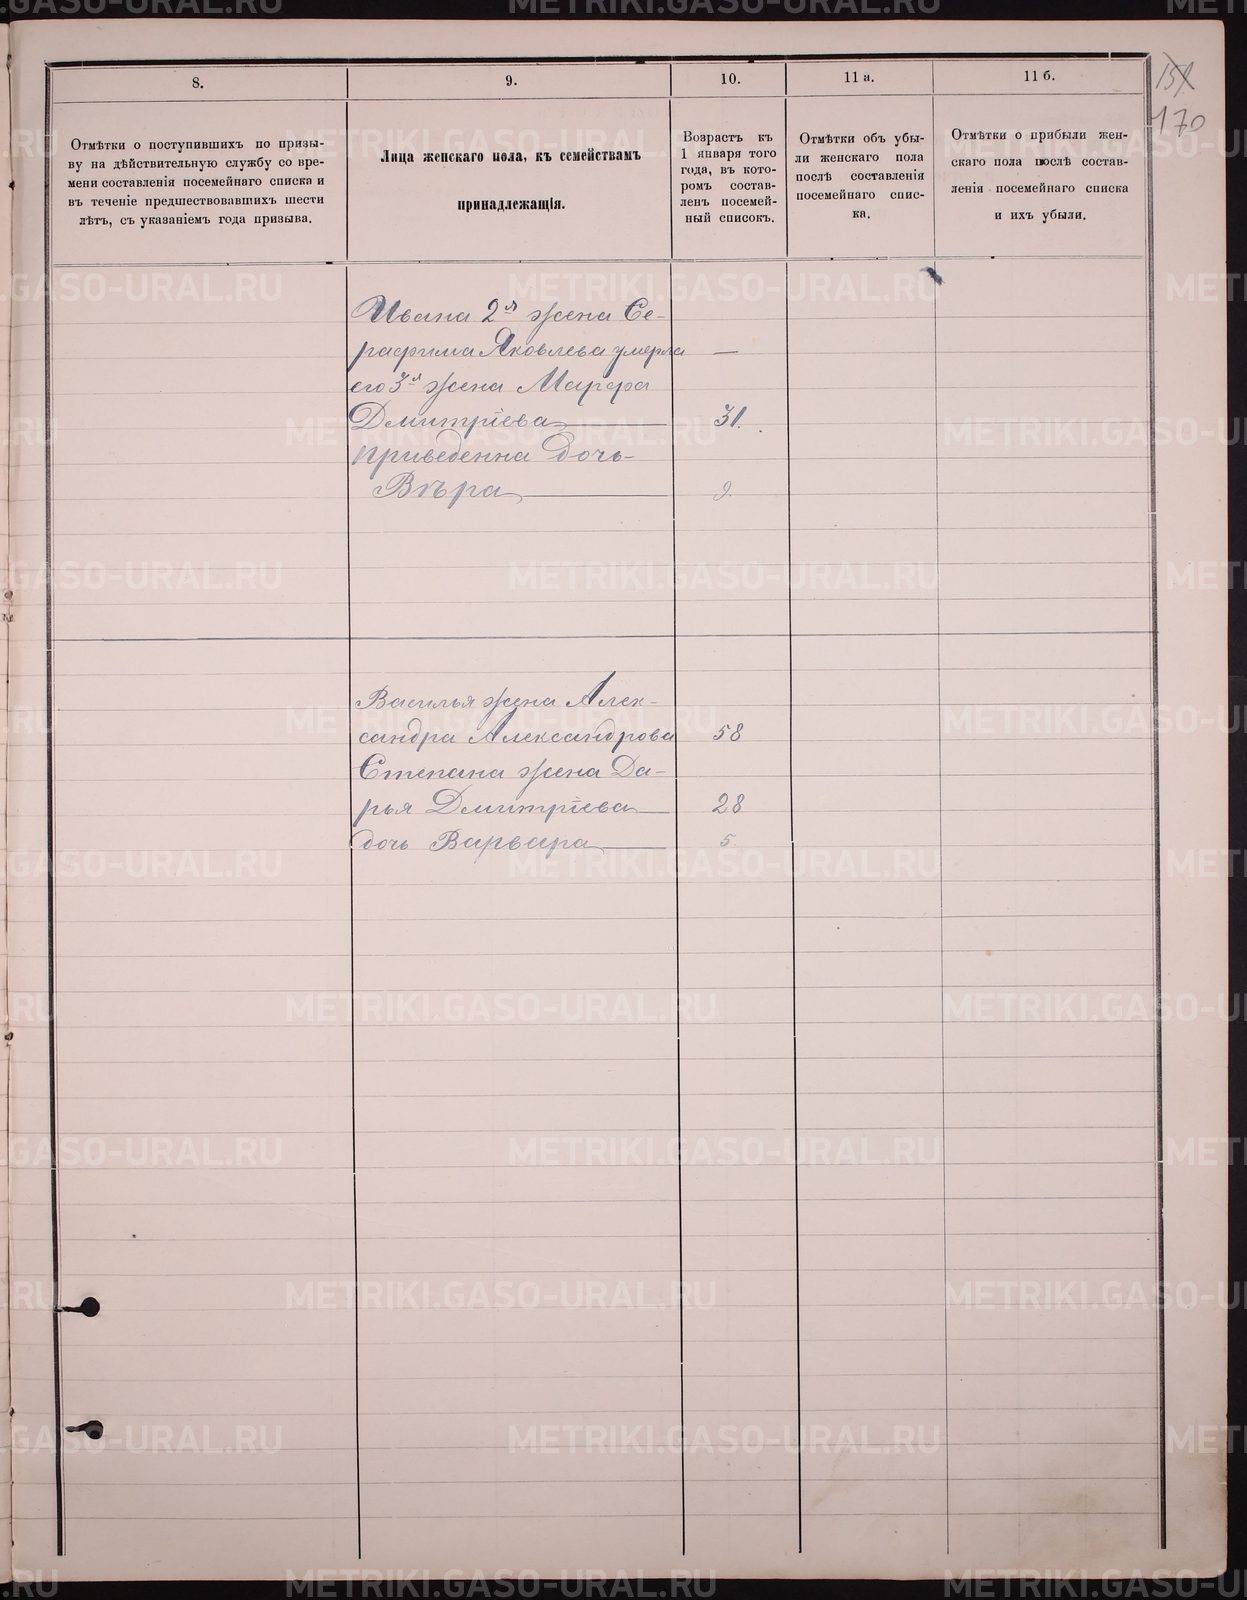 8.
Отмѣтки о поступившихъ по призы-
ву на дѣйствительную службу со вре-
мени составленія посемейнаго списка и
въ теченіе предшествовавшихъ шести
лѣтъ, съ указаніемъ года призыва.
9.
Лица женскаго пола, къ семействамъ
принадлежащія.
10.
Возрастъ къ
1 января того
года, въ кото-
ромъ состав-
ленъ посемей-
ный списокъ.
11 а.
Отмѣтки объ убы-
ли женскаго пола
послѣ составленія
посемейнаго спис-
ка.
11 б.
Отмѣтки о прибыли жен-
скаго пола послѣ состав-
ленія посемейнаго списка
и ихъ убыли.
170
Ивана 2я жена Се-
рафима Яковлева умерла —
его 3я жена Марфа
Дмитріева 31.
приведенна дочь
Вѣра 9.
Василья жена Алек-
сандра Александрова 58
Степана жена Да-
рья Дмитріева 28
дочь Варвара 5.
METRIKI.GASO-URAL.RU